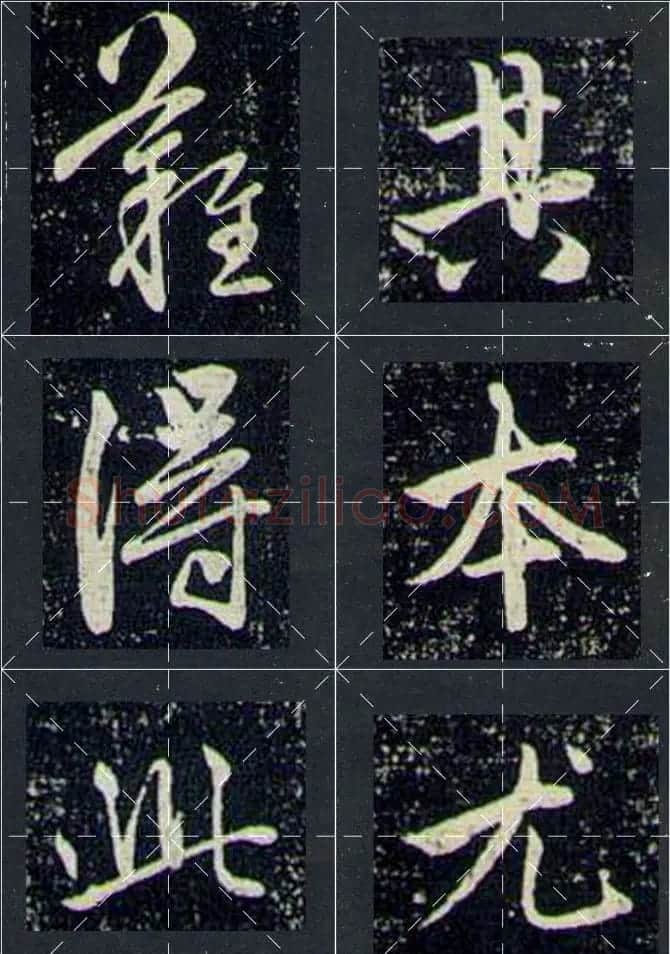 其本尤
難得此
Shufaziliao.COM